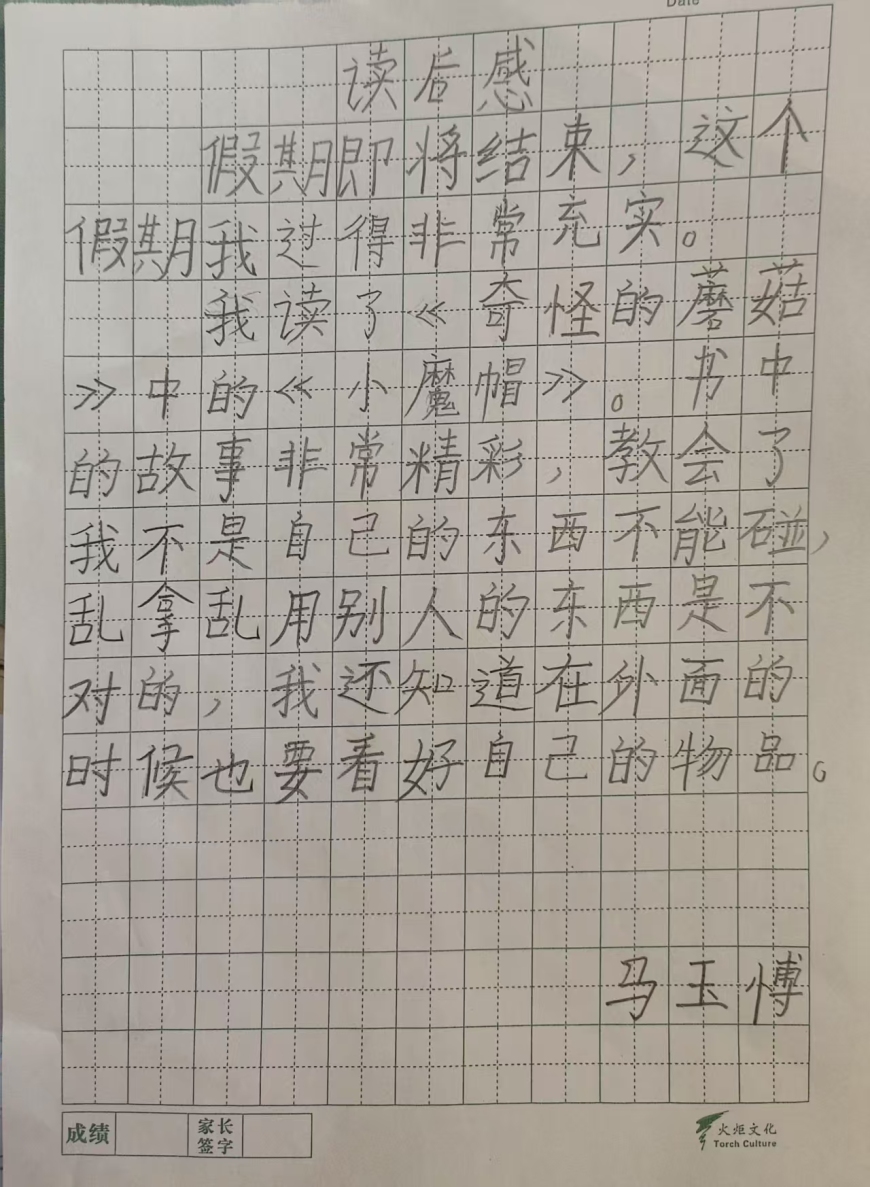 Date
读后感
假期即将结束，这个
假期我过得非常充实。
我读了《奇怪的蘑菇
》中的《小魔帽》。书中
的故事非常精彩，教会了
我不是自己的东西不能碰，
乱拿乱用别人的东西是不
对的，我还知道在外面的
时候也要看好自己的物品。
马玉愽
成绩
家长
签字
火炬文化
Torch Culture